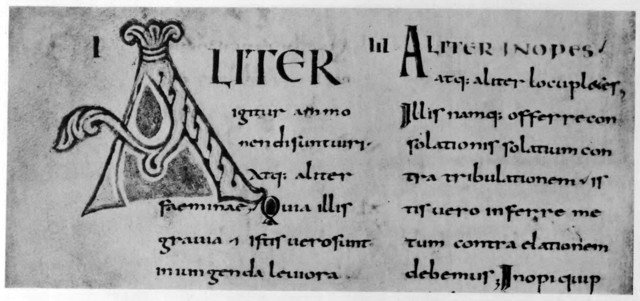 I ALITER
igitur ammo
nendi sunt uiri·
Atq: aliter
faeminae; Quia illis
grauia & istis uero sunt
iniungenda leuiora·
III ALITER INOPES
atq: aliter locupletes,
Illis namq: offerre con
solationis solatium con
tra tribulationem is
tis uero inferre me
tum contra elationem
debemus; Inopi quip